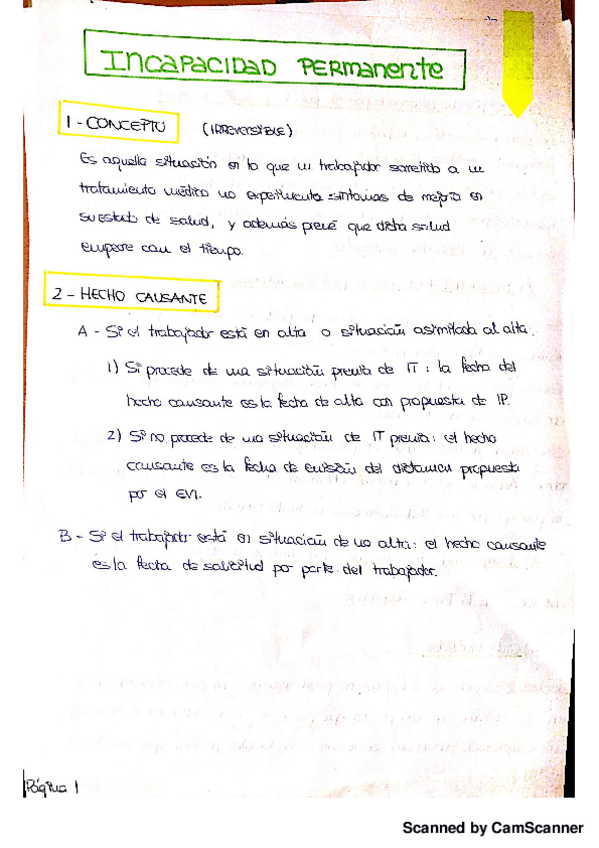 INCAPACIDAD PERMANENTE
1 - CONCEPTO (IRREVERSIBLE)
Es aquella situación en la que un trabajador sometido a un
tratamiento médico no experimenta síntomas de mejoría en
su estado de salud, y además prevé que dicha salud
empeore con el tiempo.
2 - HECHO CAUSANTE
A - Si el trabajador está en alta o situación asimilada al alta.
1) Si procede de una situación previa de IT : la fecha del
hecho causante es la fecha de alta con propuesta de IP.
2) Si no procede de una situación de IT previa: el hecho
causante es la fecha de emisión del dictamen propuesta
por el EVI.
B - Si el trabajador está en situación de no alta: el hecho causante
es la fecha de solicitud por parte del trabajador.
Página 1
Scanned by CamScanner